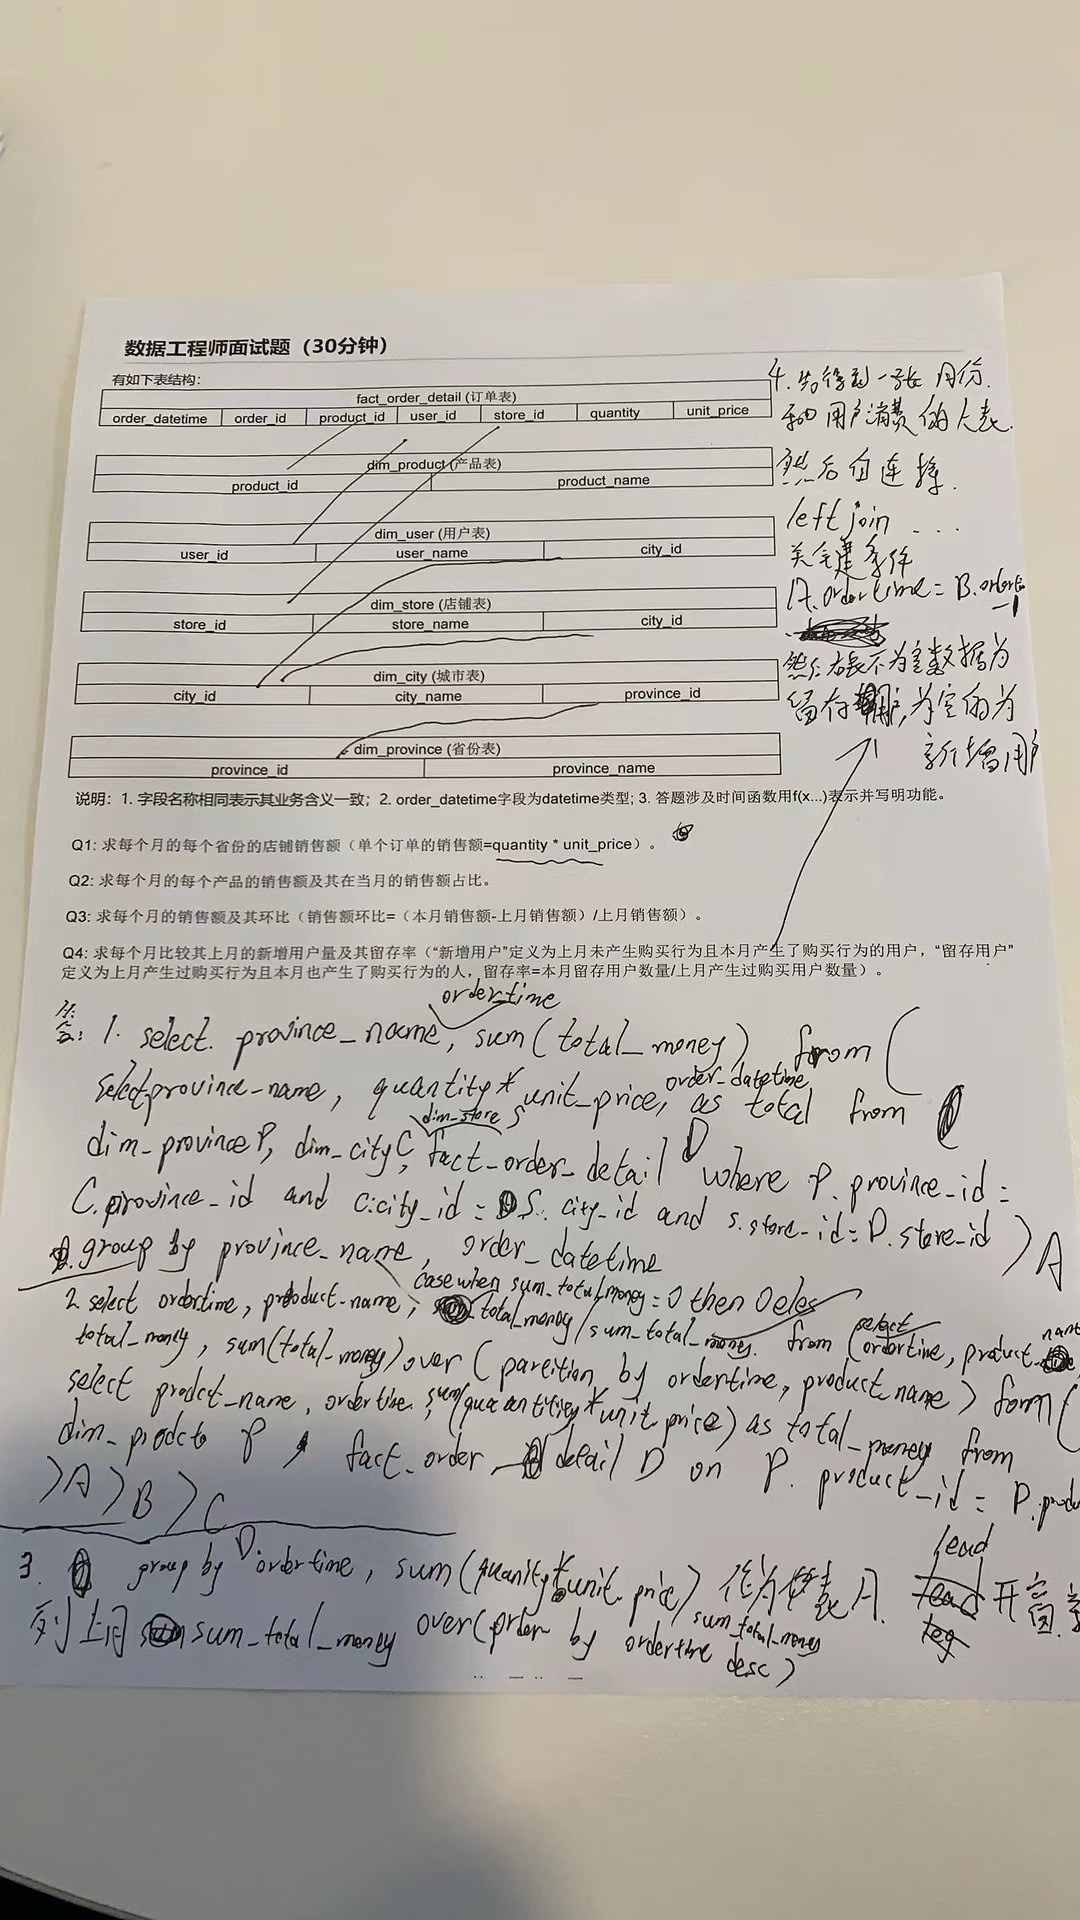 数据工程师面试题（30分钟）
有如下表结构：
fact_order_detail (订单表)
order_datetime order_id product_id user_id store_id quantity unit_price
dim_product (产品表)
product_id product_name
dim_user (用户表)
user_id user_name city_id
dim_store (店铺表)
store_id store_name city_id
dim_city (城市表)
city_id city_name province_id
dim_province (省份表)
province_id province_name
4. 先得到一张 月份.
和 用户消费 的大表.
然后自连接.
left join ...
关键条件
A.ordertime = B.orderti
-1
然后右表不为空数据为
留存用户, 为空的为
新增用户
说明：1. 字段名称相同表示其业务含义一致；2. order_datetime字段为datetime类型; 3. 答题涉及时间函数用f(x...)表示并写明功能。
Q1: 求每个月的每个省份的店铺销售额（单个订单的销售额=quantity * unit_price）。
Q2: 求每个月的每个产品的销售额及其在当月的销售额占比。
Q3: 求每个月的销售额及其环比（销售额环比=（本月销售额-上月销售额）/上月销售额）。
Q4: 求每个月比较其上月的新增用户量及其留存率（“新增用户”定义为上月未产生购买行为且本月产生了购买行为的用户，“留存用户”
定义为上月产生过购买行为且本月也产生了购买行为的人，留存率=本月留存用户数量/上月产生过购买用户数量）。
order_time
答: 1. select. province_name, sum(total_money) from (
select province_name, quantity * unit_price, order_datetime as total from
dim_province P, dim_city C, dim_store S fact_order_detail D where P.province_id =
C.province_id and C.city_id = S.city_id and s.store_id = D.store_id
group by province_name, order_datetime )A
case when sum_total_money = 0 then 0 eles
2. select ordertime, product_name, total_money/sum_total_money. from (select ordertime, product_name
total_money, sum(total_money) over (partition by ordertime, product name) form (
select prodct_name, ordertime, sum(quantity * unit price) as total_money from
dim_prodcts P, fact_order_detail D on P.product_id = D.produ
)A )B )C
3. group by D ordertime, sum(quanity * unit price) 作为 表A. lead 开窗
sum_total_money over(order by ordertime desc) sum_total_money